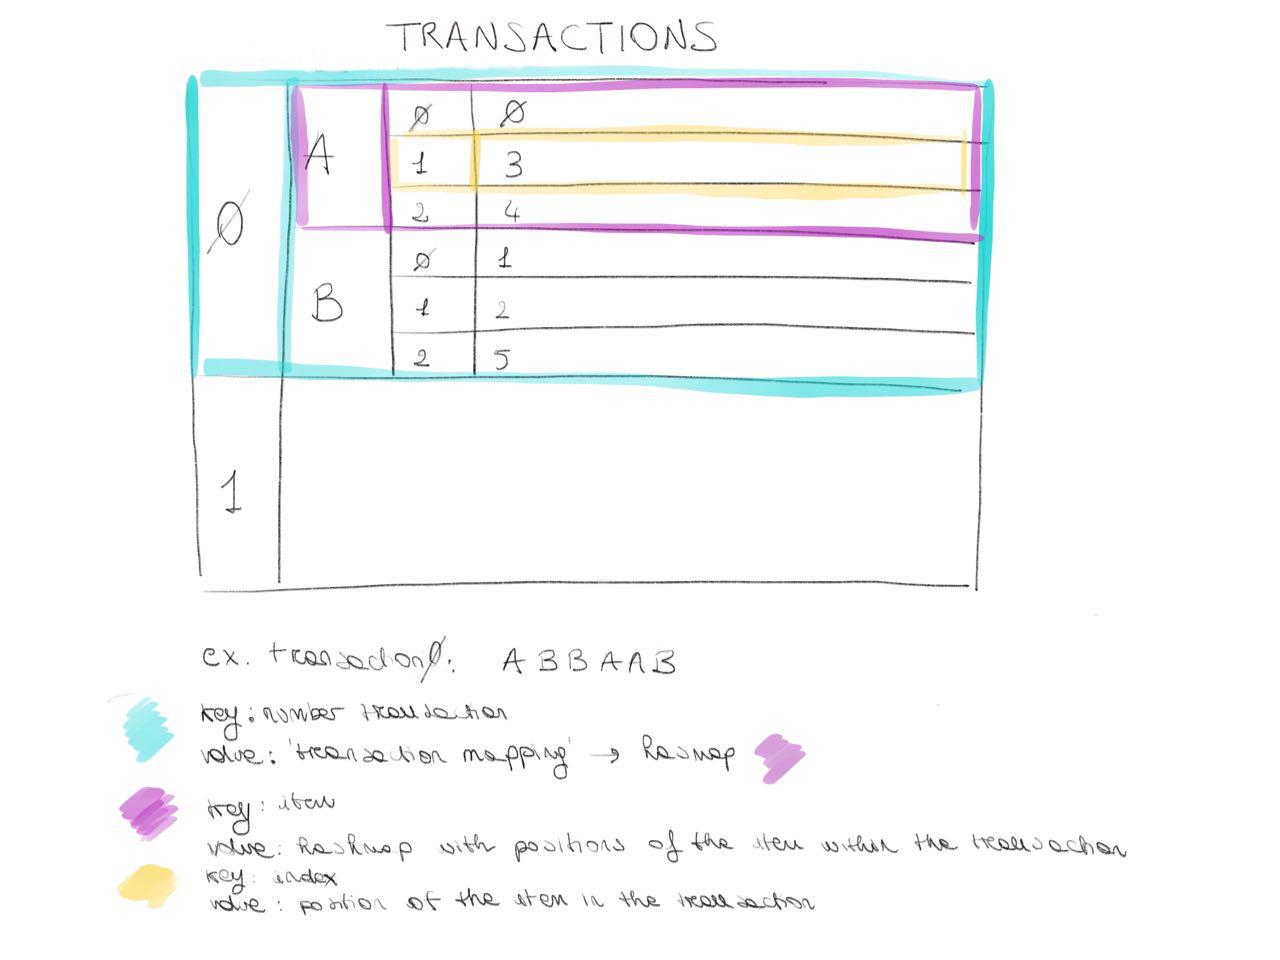 TRANSACTIONS
0 0
A 1 3
0
2 4
0 1
B 1 2
2 5
1
ex. transaction 0: A B B A A B
key: number transaction
value: 'transaction mapping' → hasmap
key: item
value: hashmap with positions of the item within the transaction
key: index
value: position of the item in the transaction